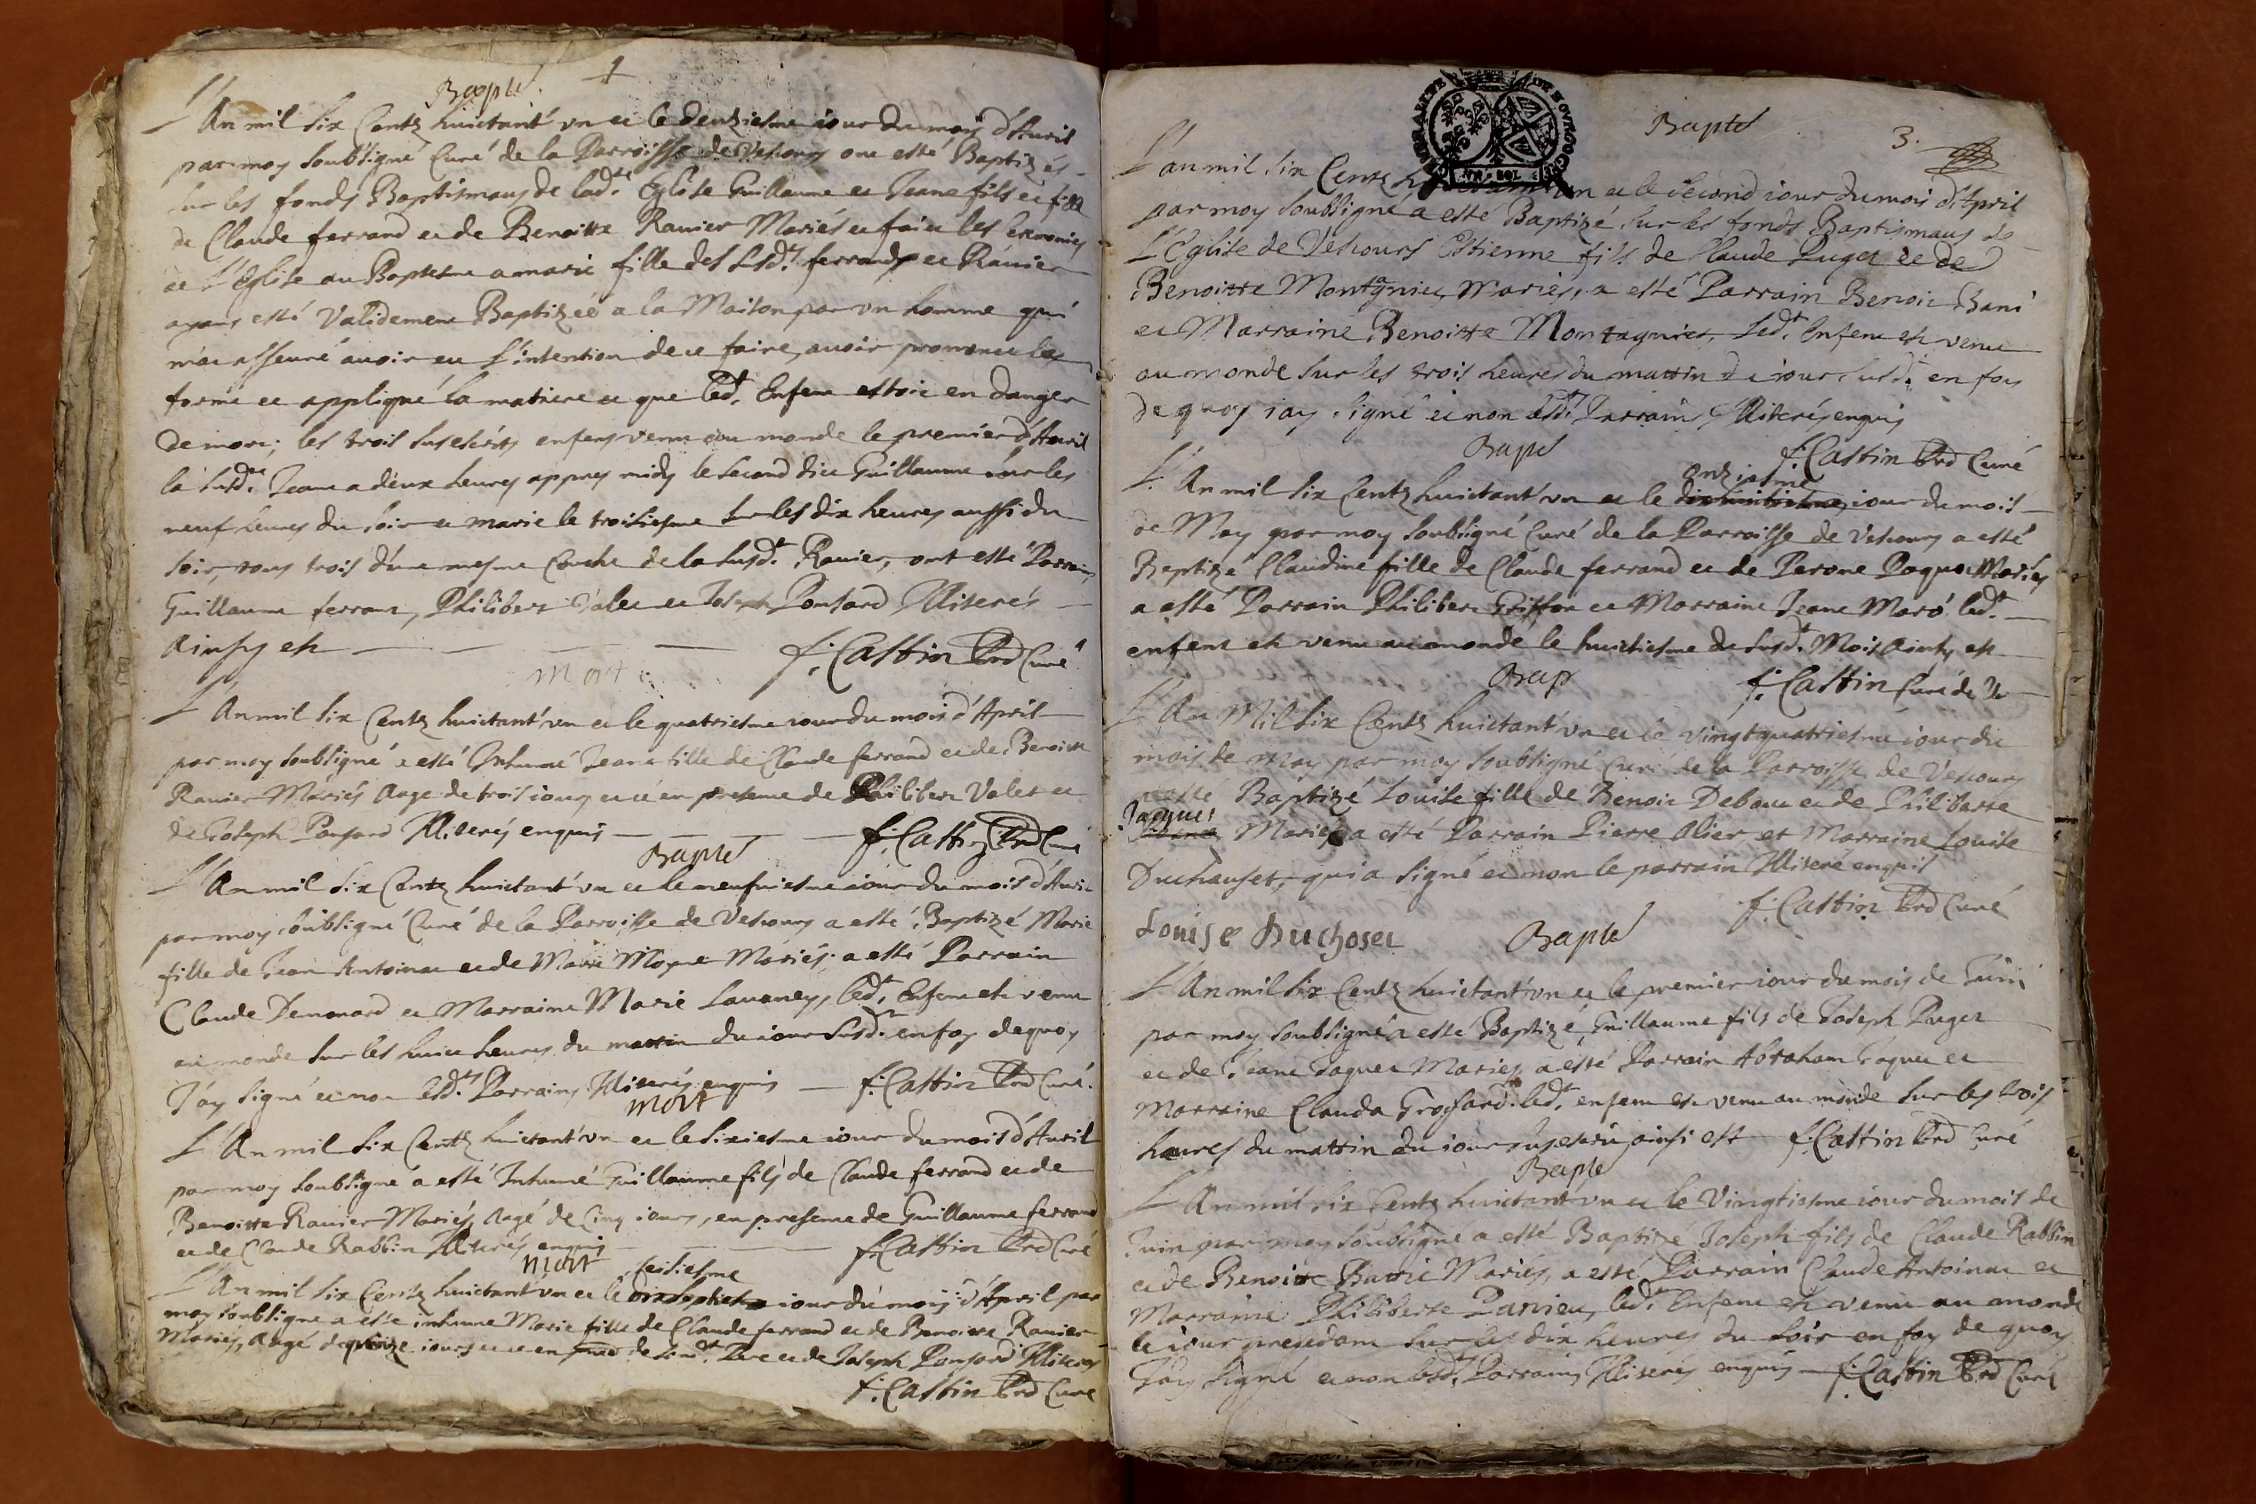 Bapte
L'An mil six Centz huictant'vn et le deuxiesme iour du mois d'Auril
par moy soubsigné Curé de la Parroisse de Vescours ont esté Baptizés
sur les fonds Baptismaux de lad.te Eglise Guillaume et Jeane fils et fille
de Claude ferrand et de Benoitte Ranier Mariés et faict les ceremonies
de l'Eglise au Baptesme a marie fille des susd.ts ferrand et Ranier
ayant esté Validement Baptizée a la Maison par vn homme qui
m'at asseuré auoir eu l'intention de ce faire, auoir prononcé la
forme et appliqué la matiere et que led.t Enfent estoit en danger
de mort; les trois susescrits enfens venu au monde le premier d'Auril
la susd.te Jeane a deux heures appres midy le second dict Guillaume sur les
neuf heures du soir et marie le troisiesme sur les dix heures aussi du
soir, tous trois d'une mesme Couche de la susd.te Ranier, ont esté Parrains
Guillaume ferrand, Philibert Valet et Joseph Ponsard Illiterés
Ainsy est f. Castin Prd Curé
mort
L'An mil six Centz huictant'vn et le quatriesme iour du mois d'April
par moy soubsigné a esté Inhumé Jeane fille de Claude ferrand et de Benoitte
Ranier Mariés Aage de trois iours et ce en presence de Philibert Valet et
de Joseph Ponsard Illiterés enquis f. Castin Prd Curé
Bapte
L'An mil six Centz huictant'vn et le neufuiesme iour du mois d'Auril
par moy soubsigné Curé de la Parroisse de Vescours a esté Baptizé Marie
fille de Jean Antoinat et de Marie Moyne Mariés a esté Parrain
Claude Demonard et Marraine Marie Lauaney, led.t Enfent est venu
au monde sur les huict heures du mattin du iour susd.t en foy de quoy
J'ay signé et non lesd.ts Parrains Illiterés enquis f. Castin Prd Curé.
mort
L'An mil six Centz huictant'vn et le sixiesme iour du mois d'Auril
par moy soubsigné a esté Inhumé Guillaume fils de Claude ferrand et de
Benoitte Ranier Mariés, Aagé de Cinq iours, en presence de Guillaume ferrand
et de Claude Rabbin Illiterés enquis f. Castin Prd Curé
mort seiziesme
L'An mil six Centz huictant'vn et le iour du mois d'April par
moy soubsigné a esté inhumé Marie fille de Claude ferrand et de Benoitte Ranier
Mariés, Aagé de quinze iours et ce en de Pere et de Joseph Ponsard Illiterés
f. Castin Prd Curé
Bapte
3.
L'an mil six Centz et le second iour du mois d'April
par moy soubsigné a esté Baptizé sur les fonds Baptismaux de
L'Eglise de Vescours Estienne fils de Claude Puget et de
Benoitte Montagnier Mariés, a esté Parrain Benoit Bani
et Marraine Benoitte Montagnier, led.t Enfent est venu
au monde sur les trois heures du mattin du iour susd.t en foy
de quoy iay signé et non lesd.ts Parrains Illiterés enquis
f. Castin Prd Curé
Bapte
ontziesme
L'An mil six Centz huictant'vn et le iour du mois
de May par moy soubsigné Curé de la Parroisse de Vescours a esté
Baptizé Claudine fille de Claude ferrand et de Perone Paquet Mariés
a esté Parrain Philibert Griffon et Marraine Jeane Maró led.t
enfent est venu au monde le huictiesme du susd.t Mois Ainsy est
f. Castin Curé de Ve
Bap
L'An Mil six Centz huictant'vn et le vingtquatriesme iour du
mois de may par moy soubsigné Curé de la Parroisse de Vescours
a esté Baptizé Louise fille de Benoit Debout et de Philiberte
Jaquet Mariés a esté Parrain Pierre Alier et Marraine Louise
Duchauset, qui a signé et non le parrain Illiteré enquis
f. Castin Prd Curé
Louise Duchoset
Bapte
L'An mil six Centz huictant'vn et le premier iour du mois de Juin
par moy soubsigné a esté Baptizé Guillaume fils de Joseph Puget
et de Jeane Jaquet Mariés a esté Parrain Abraham Jaquet et
Marraine Clauda Grossard led.t enfent est venu au monde sur les trois
heures du mattin du iour susescrit, ainsi est f. Castin Prd Curé
Bapte
L'An mil six Centz huictant'vn et le Vingtiesme iour du mois de
Juin par moy soubsigné a esté Baptizé Joseph fils de Claude Rabbin
et de Benoitte Mariés, a esté Parrain Claude Antoinat et
Marraine Philiberte Panieu, led.t Enfent est venu au monde
le iour precedent sur les dix heures du soir en foy de quoy
J'ay signé et non lesd.ts Parrains Illiterés enquis f. Castin Prd Curé